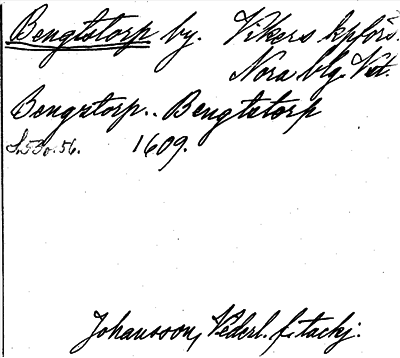 Bengtstorp by. Vikers kpförs.
Nora blg. Vst.
Bengztorp.. Bengtstorp
1609.
Johansson, Vederl. f. tackj.